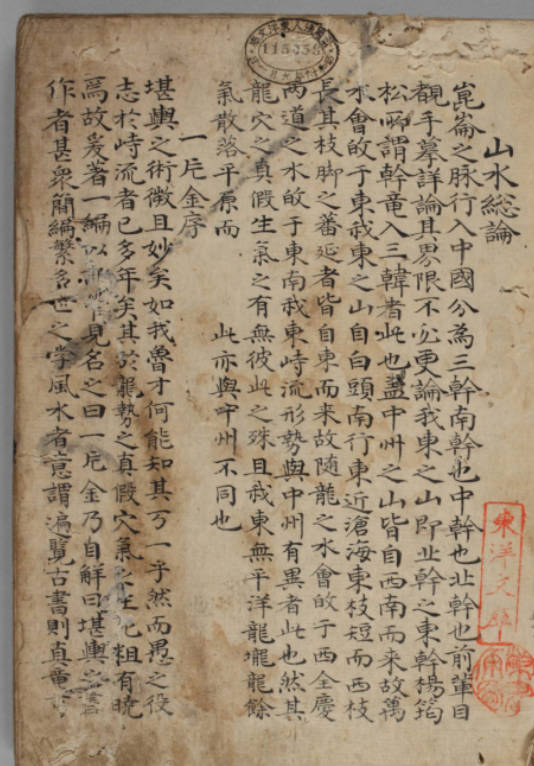 山水総論
崑崙之脉行入中國分為三幹南幹也中幹也北幹也前輩目
覩手摹詳論其界限不必更論我東之山即北幹之東幹楊筠
松所謂幹竜入三韓者此也盖中州之山皆自西南而来故萬
水會皈于東我東之山自白頭南行東近滄海東枝短而西枝
長其枝脚之蕃延者皆自東而来故隨龍之水會皈于西全慶
两道之水皈于東南我東峙流形勢與中州有異者此也然其
龍穴之真假生氣之有無彼此之殊且我東無平洋龍壠龍餘
氣散落平原而 此亦與中州不同也
一片金序
堪輿之術微且妙矣如我魯才何能知其万一乎然而愚之役
志於峙流者已多年矣其於龍勢之真假穴氣之生死粗有曉
焉故爰著一編以 管見名之曰一片金乃自解曰堪輿之書
作者甚衆簡編繁多世之学風水者意謂遍覽古書則真竜
東洋文庫
115358